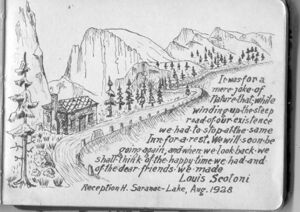 It was for a
mere joke of
Nature that, while
winding up the steep
road of our existence
we had to stop at the same
Inn for a rest. We will soon be
going again, and when we look back we
shall think of the happy time we had and
of the dear friends we made
Louis Scoloni
Reception H. Saranac-Lake, Aug. 1928.